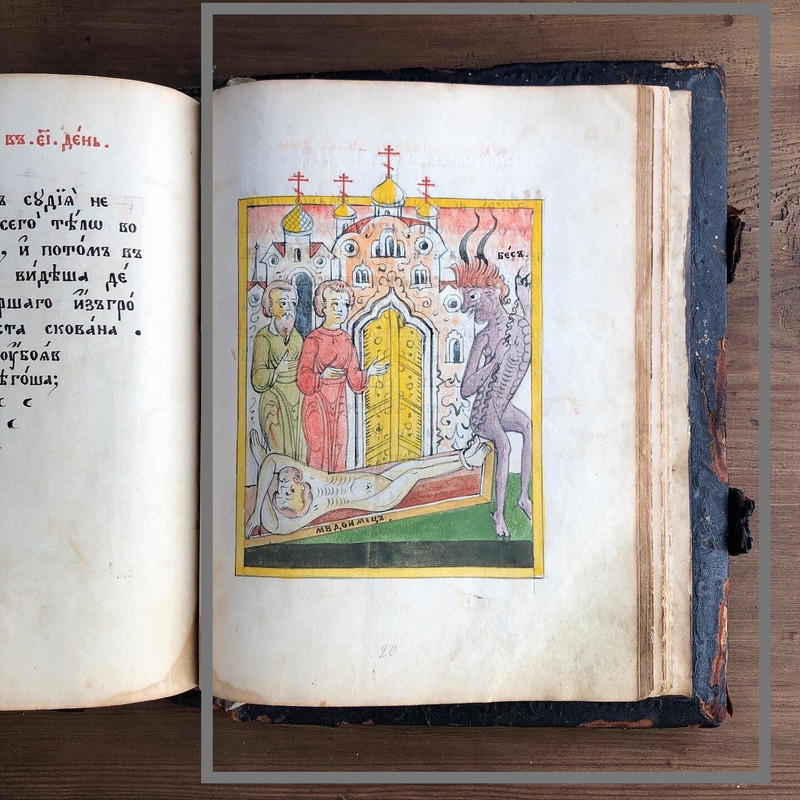 въ . є҃і . де́нь .
ъ судїѧ̀ не
сего̀ тѣ́лѡ во
, и҆ пото́мъ въ
ви́дѣша де́
ршаго и҆зъгро́
ста ско́вана .
ѹ҆боѧ́в
ѣго́ша;
бѣсъ .
мздоимецъ .
20